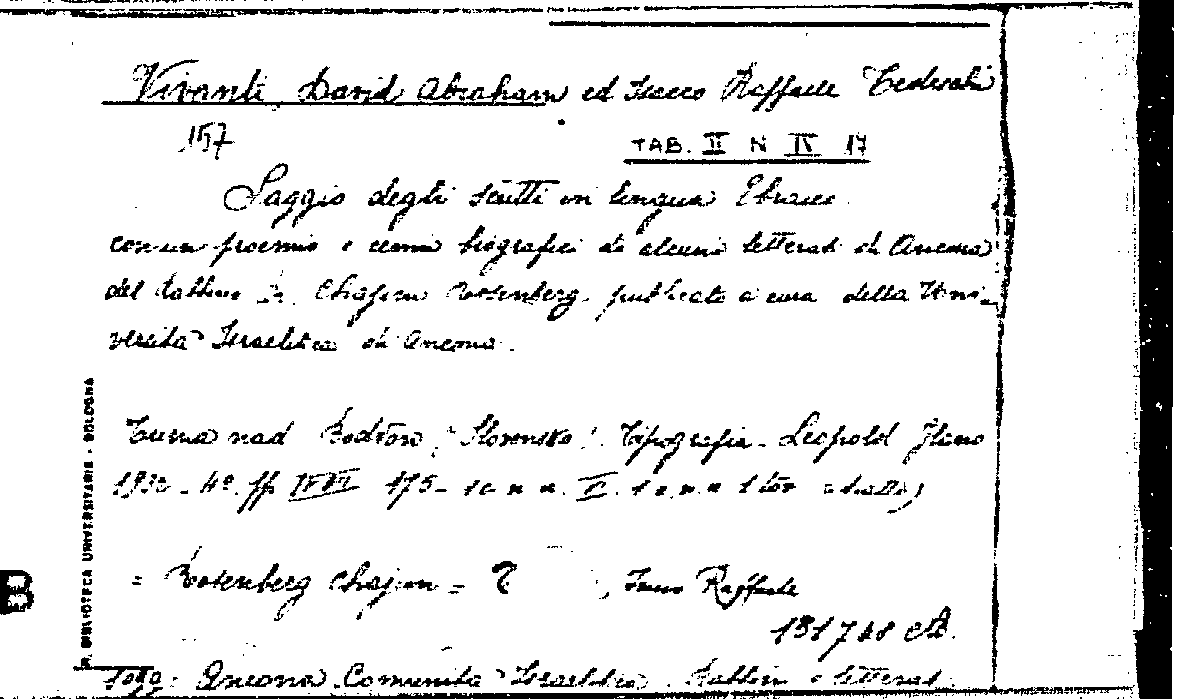 Vivanti David Abraham ed Isacco Raffaele Tedeschi
157
TAB. II N IV 17
Saggio degli scritti in lingua Ebraica
con un proemio e cenni biografici di alcuni letterati di Ancona
del rabbino Dr. Chajim Rosenberg. pubblicato a cura della Uni-
versità Israelitica di Ancona.
Turna nad Bodvou (Slovensko). Tipografia Leopold
1932 - 4º. pp 175 - n. n.
= Rosenberg Chajim = T , Isacco Raffaele
R. BIBLIOTECA UNIVERSITARIA - BOLOGNA
B
Sogg: Ancona Comunità Israelitica. Rabbini e letterati.